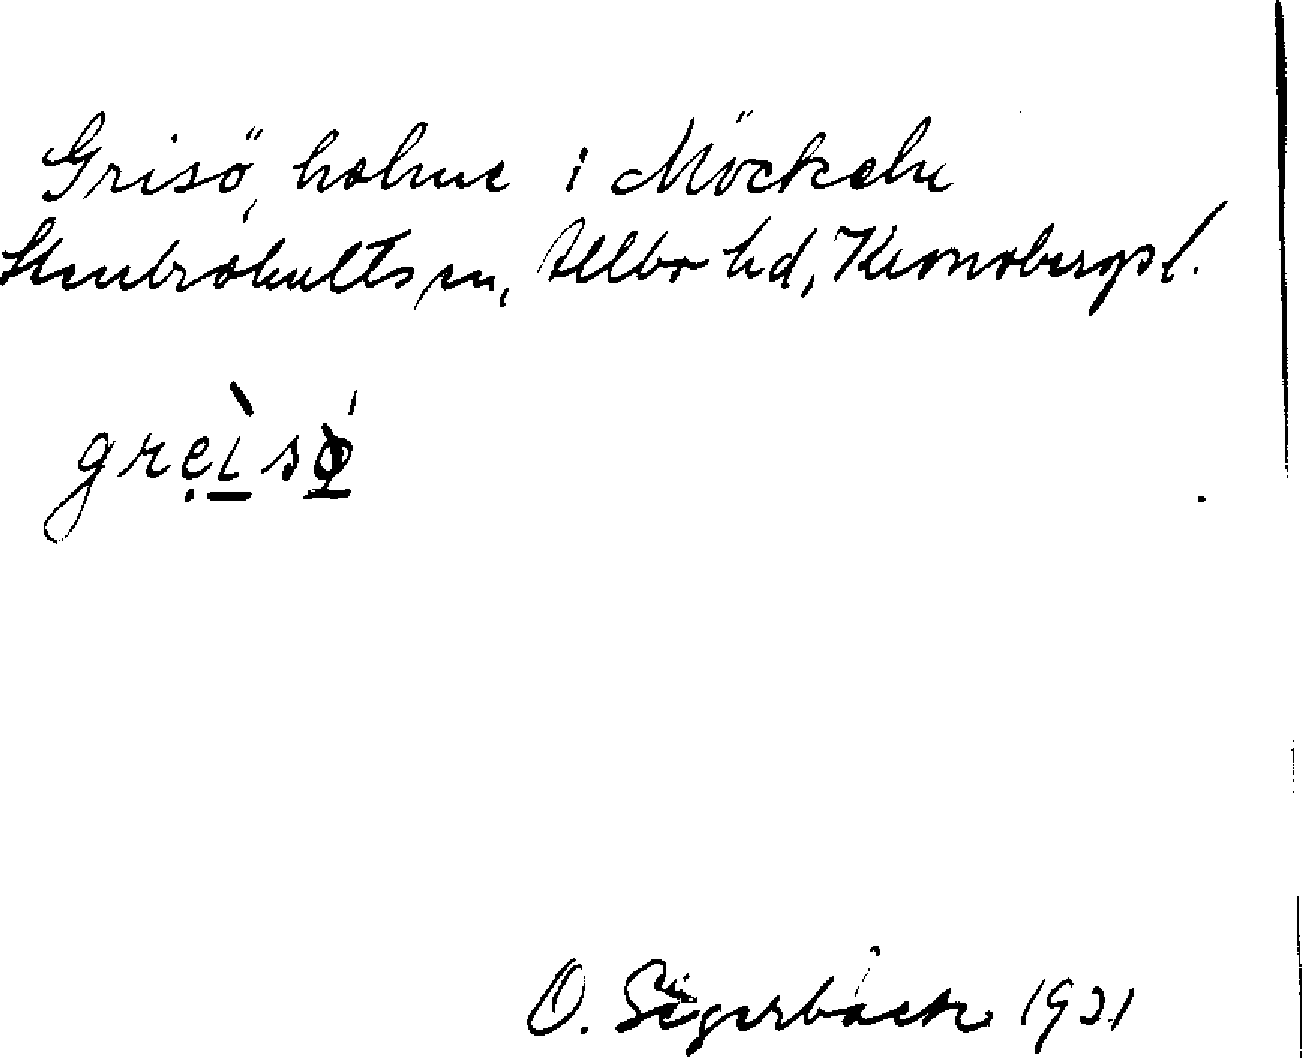 Grisö, holme i Möckeln
Stenbrohults sn, Allbo hd, Kronobergs l.
grẹi̲sø̲
O. Segerbäck 1921